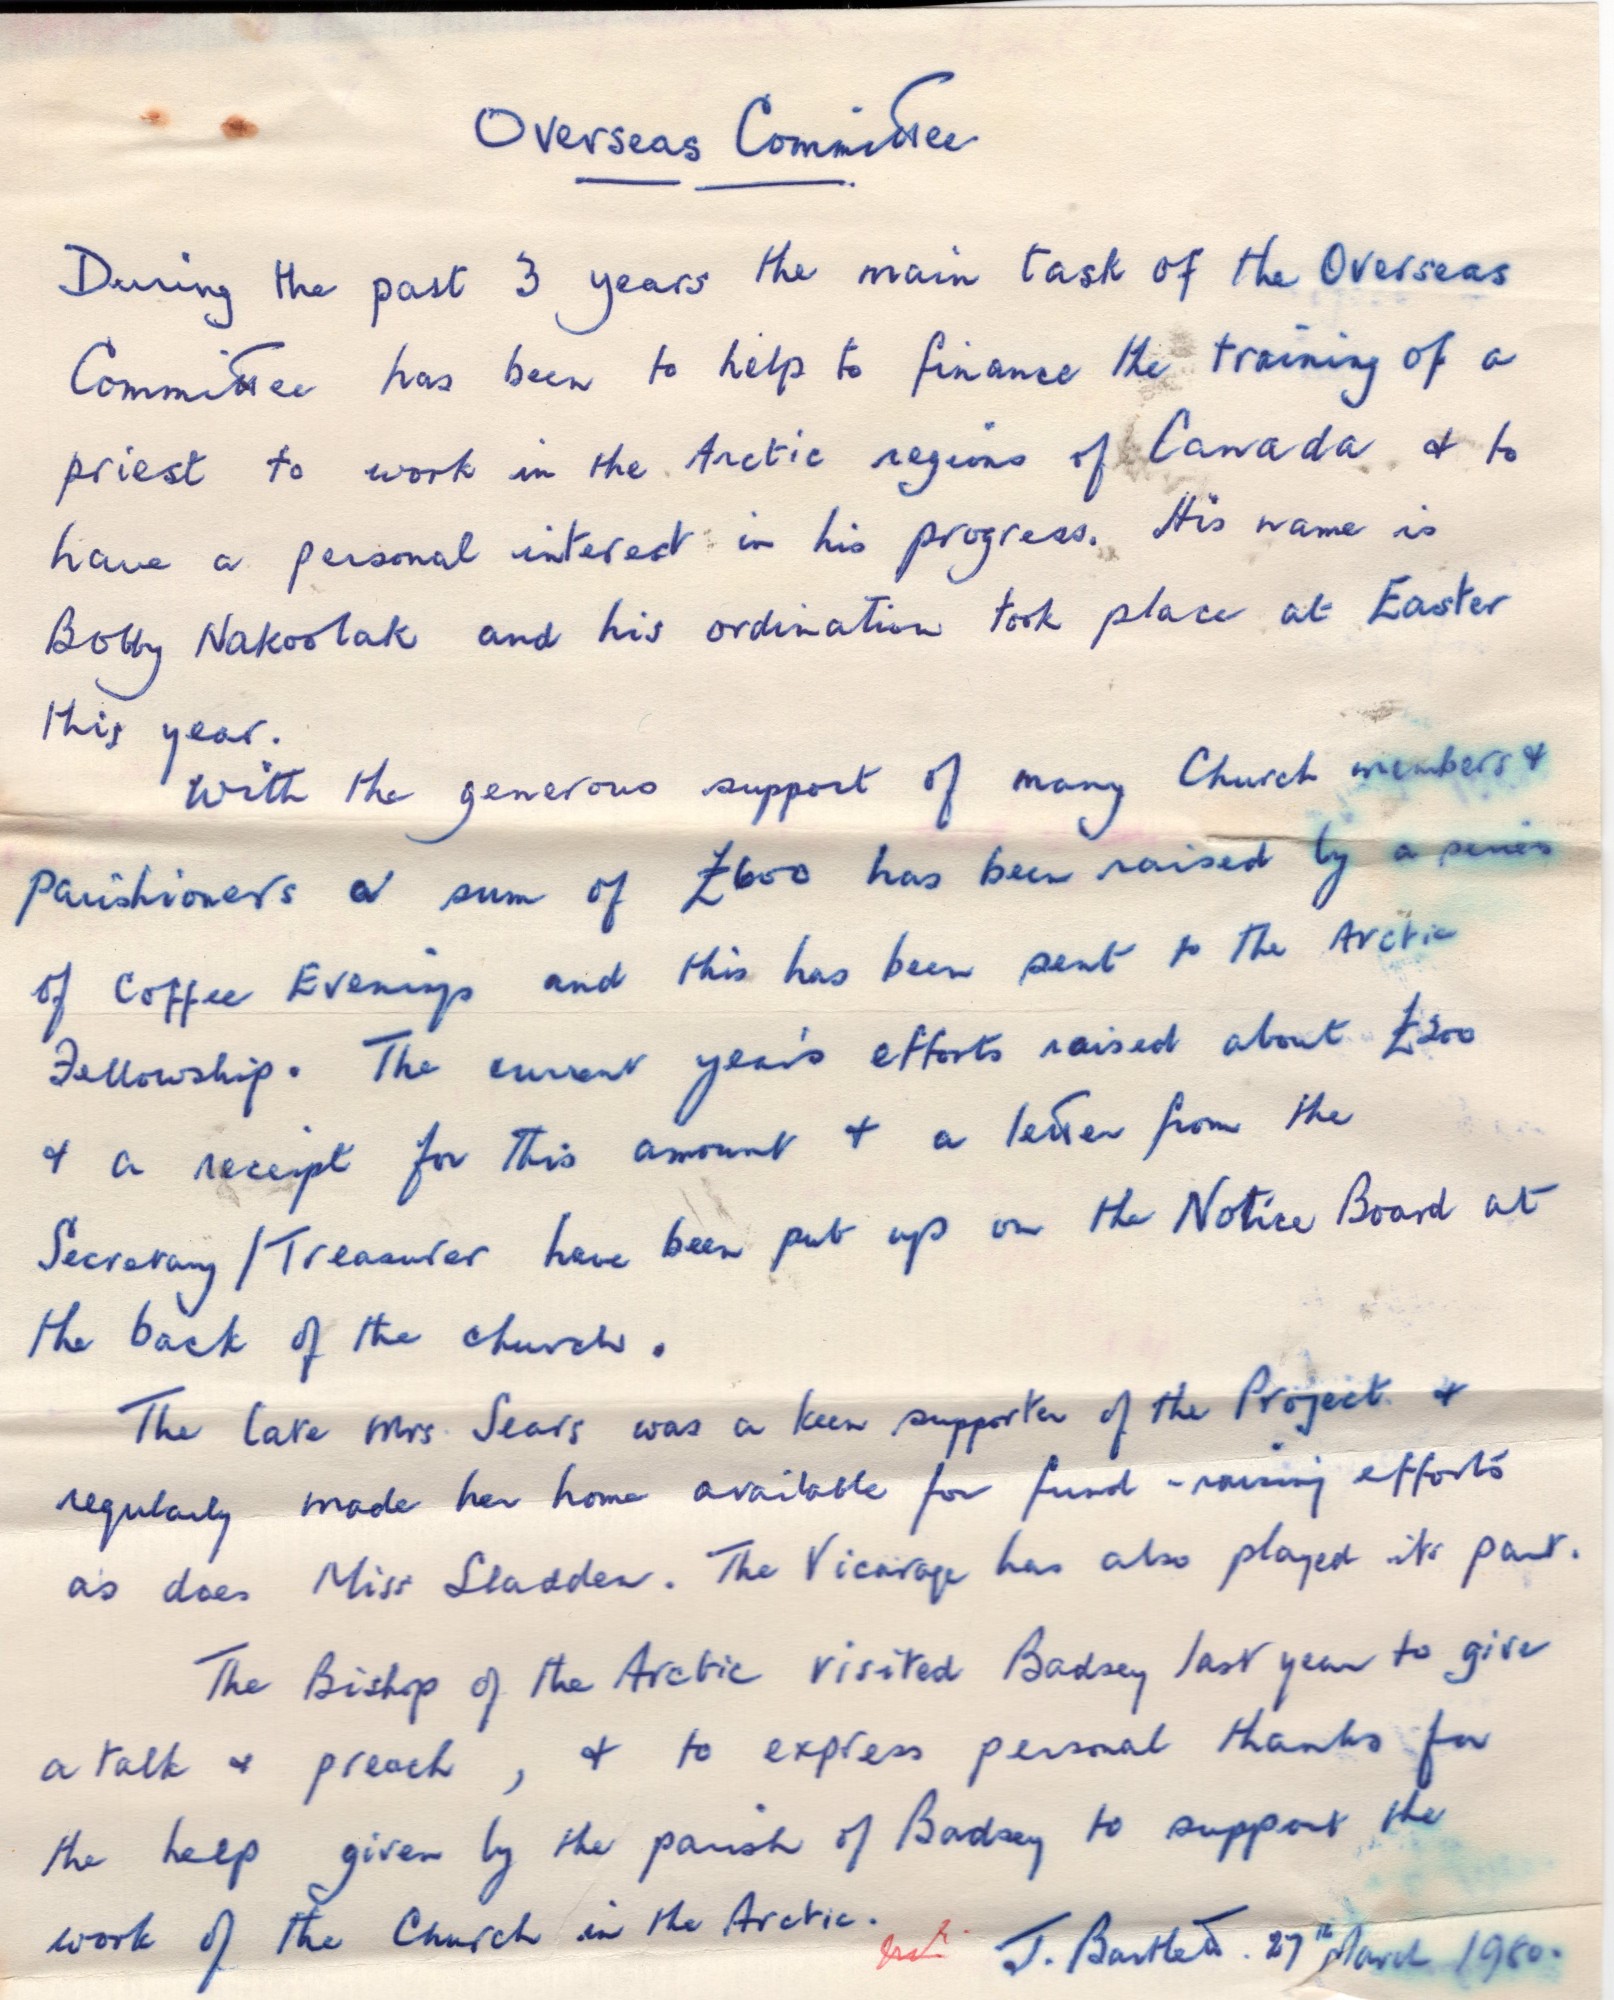 Overseas Committee
During the past 3 years the main task of the Overseas
Committee has been to help to finance the training of a
priest to work in the Arctic regions of Canada & to
have a personal interest in his progress. His name is
Bobby Nakoolak and his ordination took place at Easter
this year.
With the generous support of many Church members &
parishioners a sum of £600 has been raised by a series
of Coffee Evenings and this has been sent to the Arctic
Fellowship. The current year's efforts raised about £200
& a receipt for this amount & a letter from the
Secretary / Treasurer have been put up on the Notice Board at
the back of the church.
The late Mrs Sears was a keen supporter of the Project &
regularly made her home available for fund-raising efforts
as does Miss Sladden. The Vicarage has also played its part.
The Bishop of the Arctic visited Badsey last year to give
a talk & preach, & to express personal thanks for
the help given by the parish of Badsey to support the
work of the Church in the Arctic.
J. Bartlett. 27th March 1980.